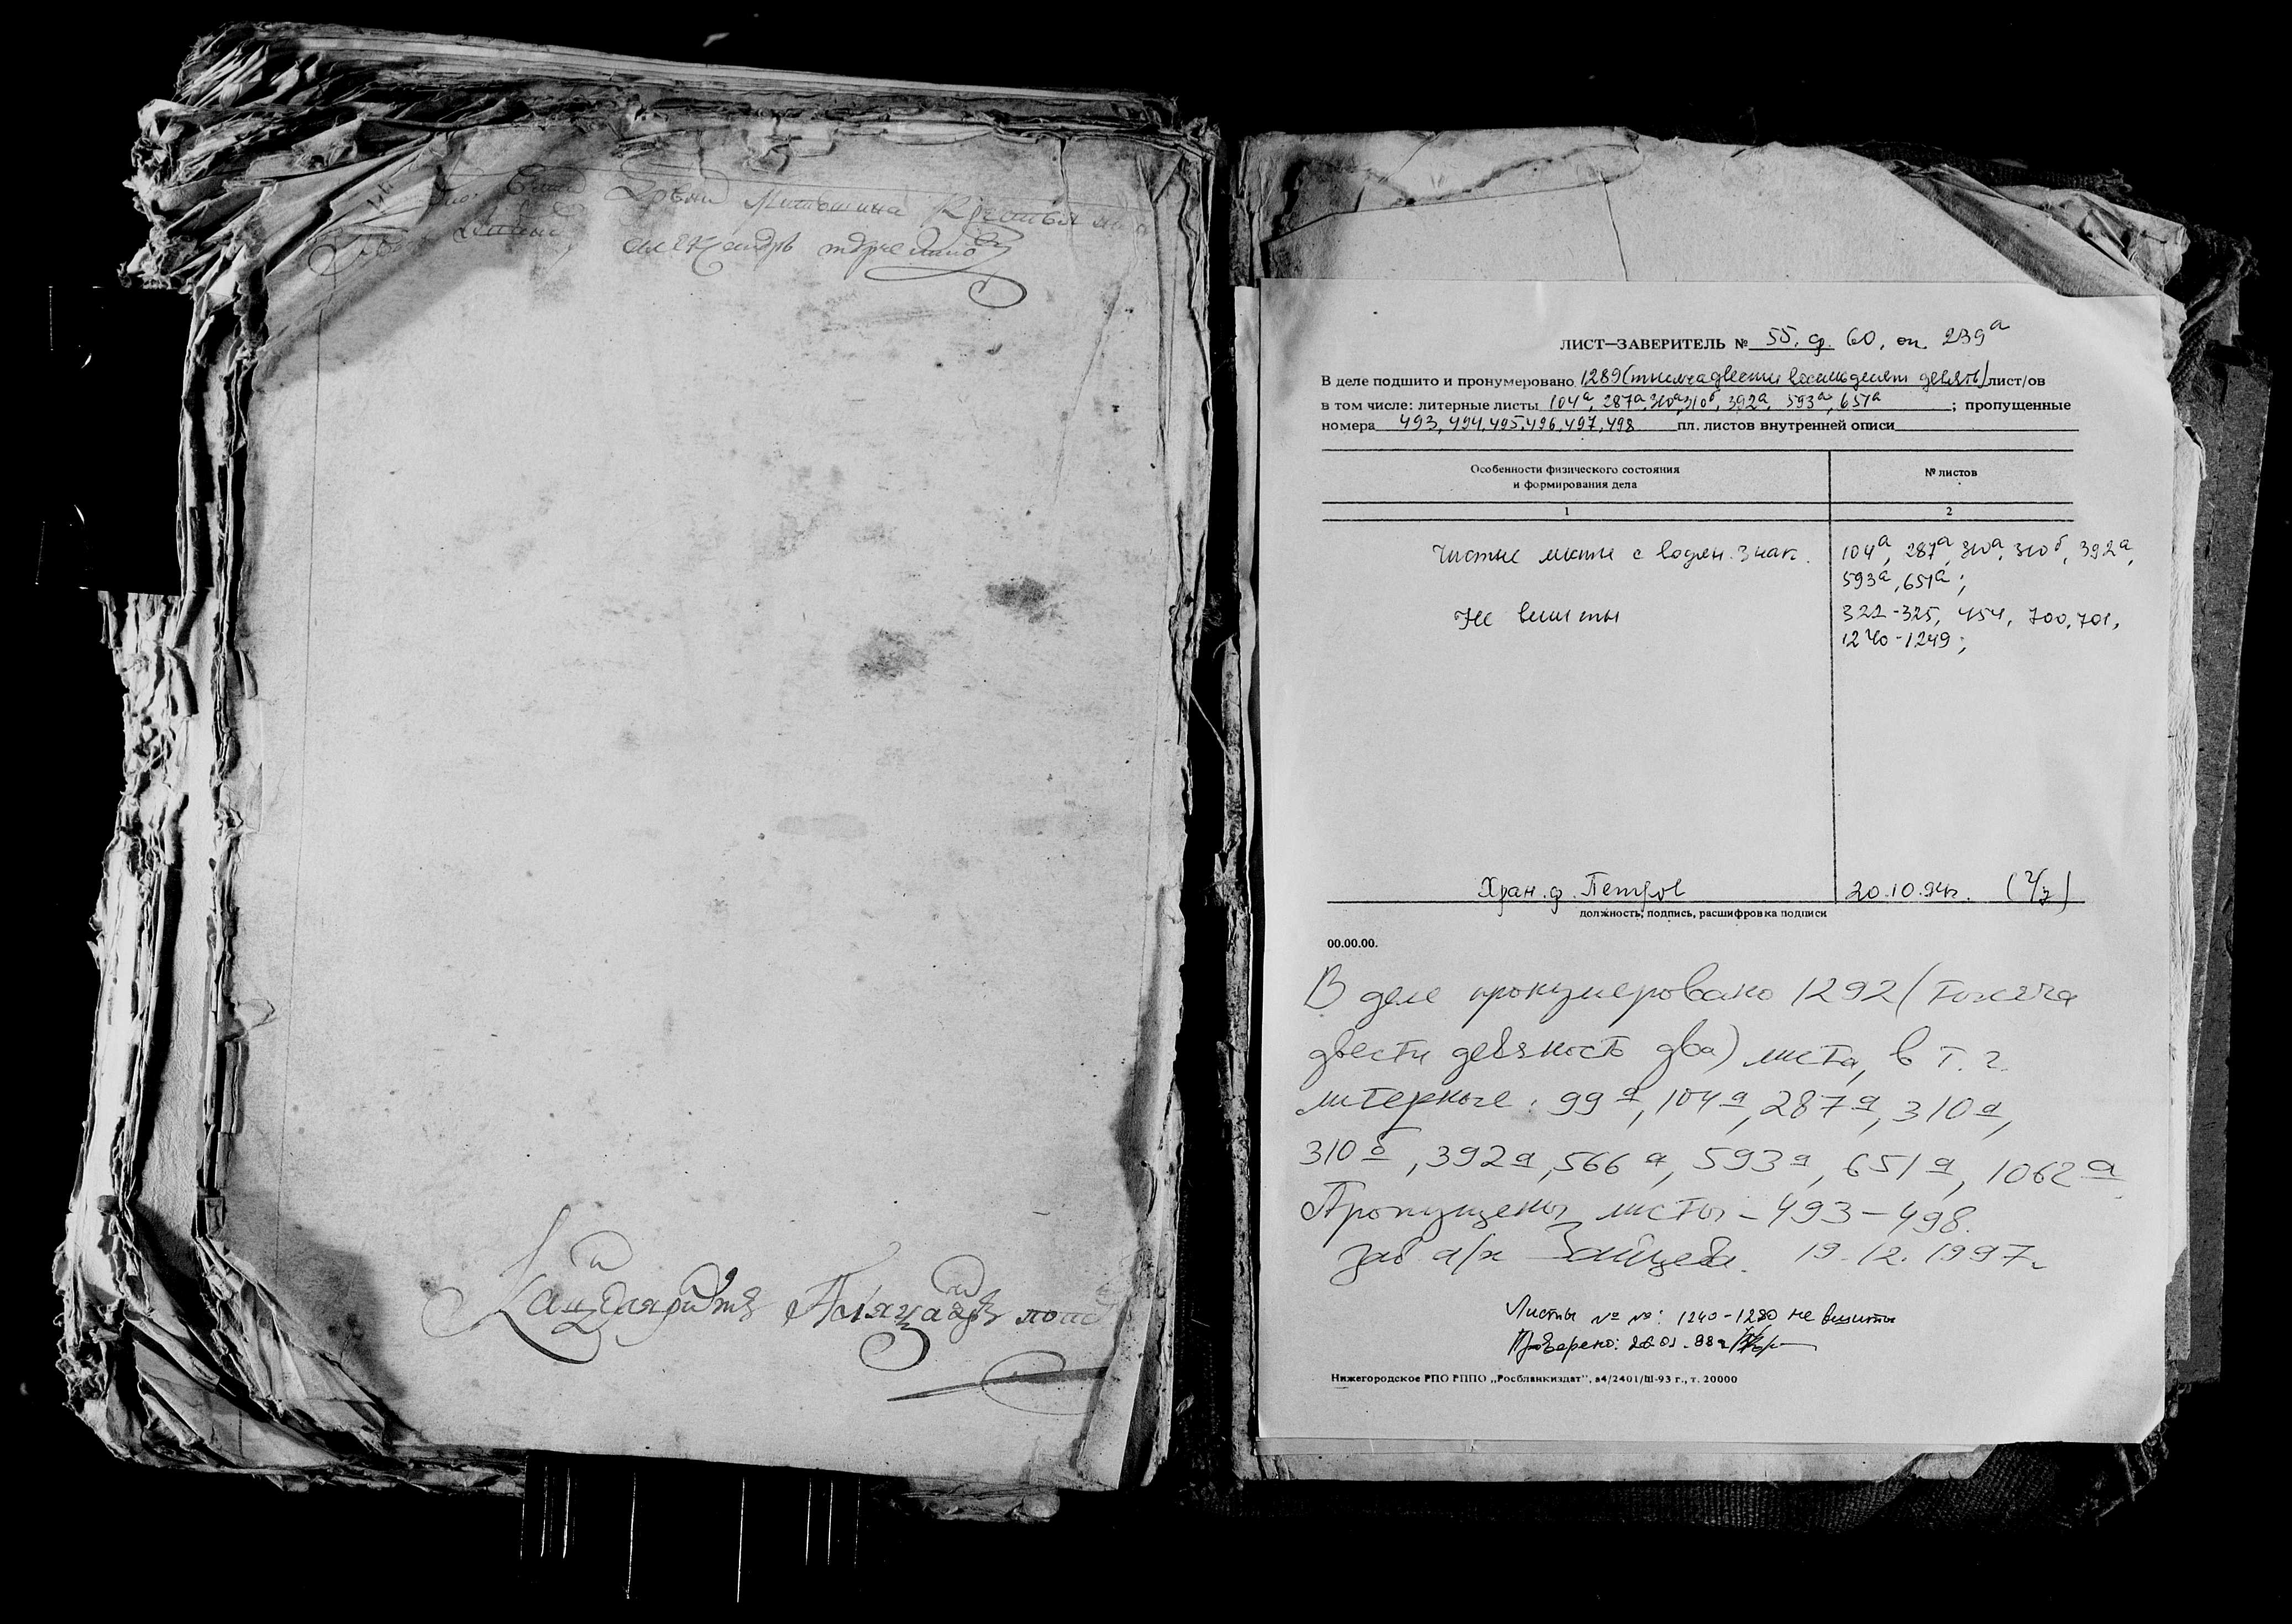 крестьянина
александръ
Канцеляристъ
ЛИСТ—ЗАВЕРИТЕЛЬ № 55. ф. 60, оп. 239а
В деле подшито и пронумеровано 1289 (тысяча двести восемьдесят девять) лист/ов
в том числе: литерные листы 104а, 287а, 310а, 310б, 392а, 593а, 651а ; пропущенные
номера 493, 494, 495, 496, 497, 498 пл. листов внутренней описи
Особенности физического состояния
и формирования дела
№ листов
1
2
Чистые листы с водян. знак.
104а, 287а, 310а, 310б, 392а,
593а, 651а;
Не вшиты
322-325, 454, 700, 701,
1240-1249;
Хран. ф. Петров
20.10.94г.
должность, подпись, расшифровка подписи
00.00.00.
В деле пронумеровано 1292 (тысяча
двести девяносто два) листа, в т. ч.
литерные: 99а, 104а, 287а, 310а,
310б, 392а, 566а, 593а, 651а, 1062а
Пропущены листы - 493-498.
Зав а/х Зайцева. 19.12.1997г.
Листы № №: 1240-1280 не вшиты
Проверено:
Нижегородское РПО РППО „Росбланкиздат", з4/2401/Ш-93 г., т. 20000